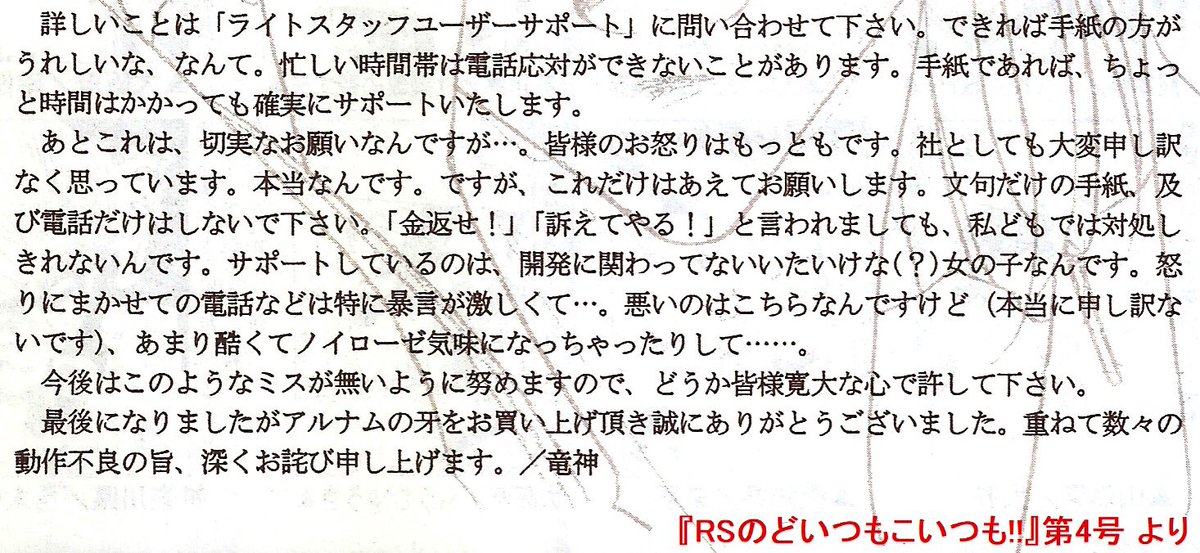 詳しいことは「ライトスタッフユーザーサポート」に問い合わせて下さい。できれば手紙の方が
うれしいな、なんて。忙しい時間帯は電話応対ができないことがあります。手紙であれば、ちょっ
と時間はかかっても確実にサポートいたします。
　あとこれは、切実なお願いなんですが…。皆様のお怒りはもっともです。社としても大変申し訳
なく思っています。本当なんです。ですが、これだけはあえてお願いします。文句だけの手紙、及
び電話だけはしないで下さい。「金返せ！」「訴えてやる！」と言われましても、私どもでは対処し
きれないんです。サポートしているのは、開発に関わってないいたいけな(？)女の子なんです。怒
りにまかせての電話などは特に暴言が激しくて…。悪いのはこちらなんですけど（本当に申し訳な
いです）、あまり酷くてノイローゼ気味になっちゃったりして……。
　今後はこのようなミスが無いように努めますので、どうか皆様寛大な心で許して下さい。
　最後になりましたがアルナムの牙をお買い上げ頂き誠にありがとうございました。重ねて数々の
動作不良の旨、深くお詫び申し上げます。／竜神
『RSのどいつもこいつも!!』第4号 より